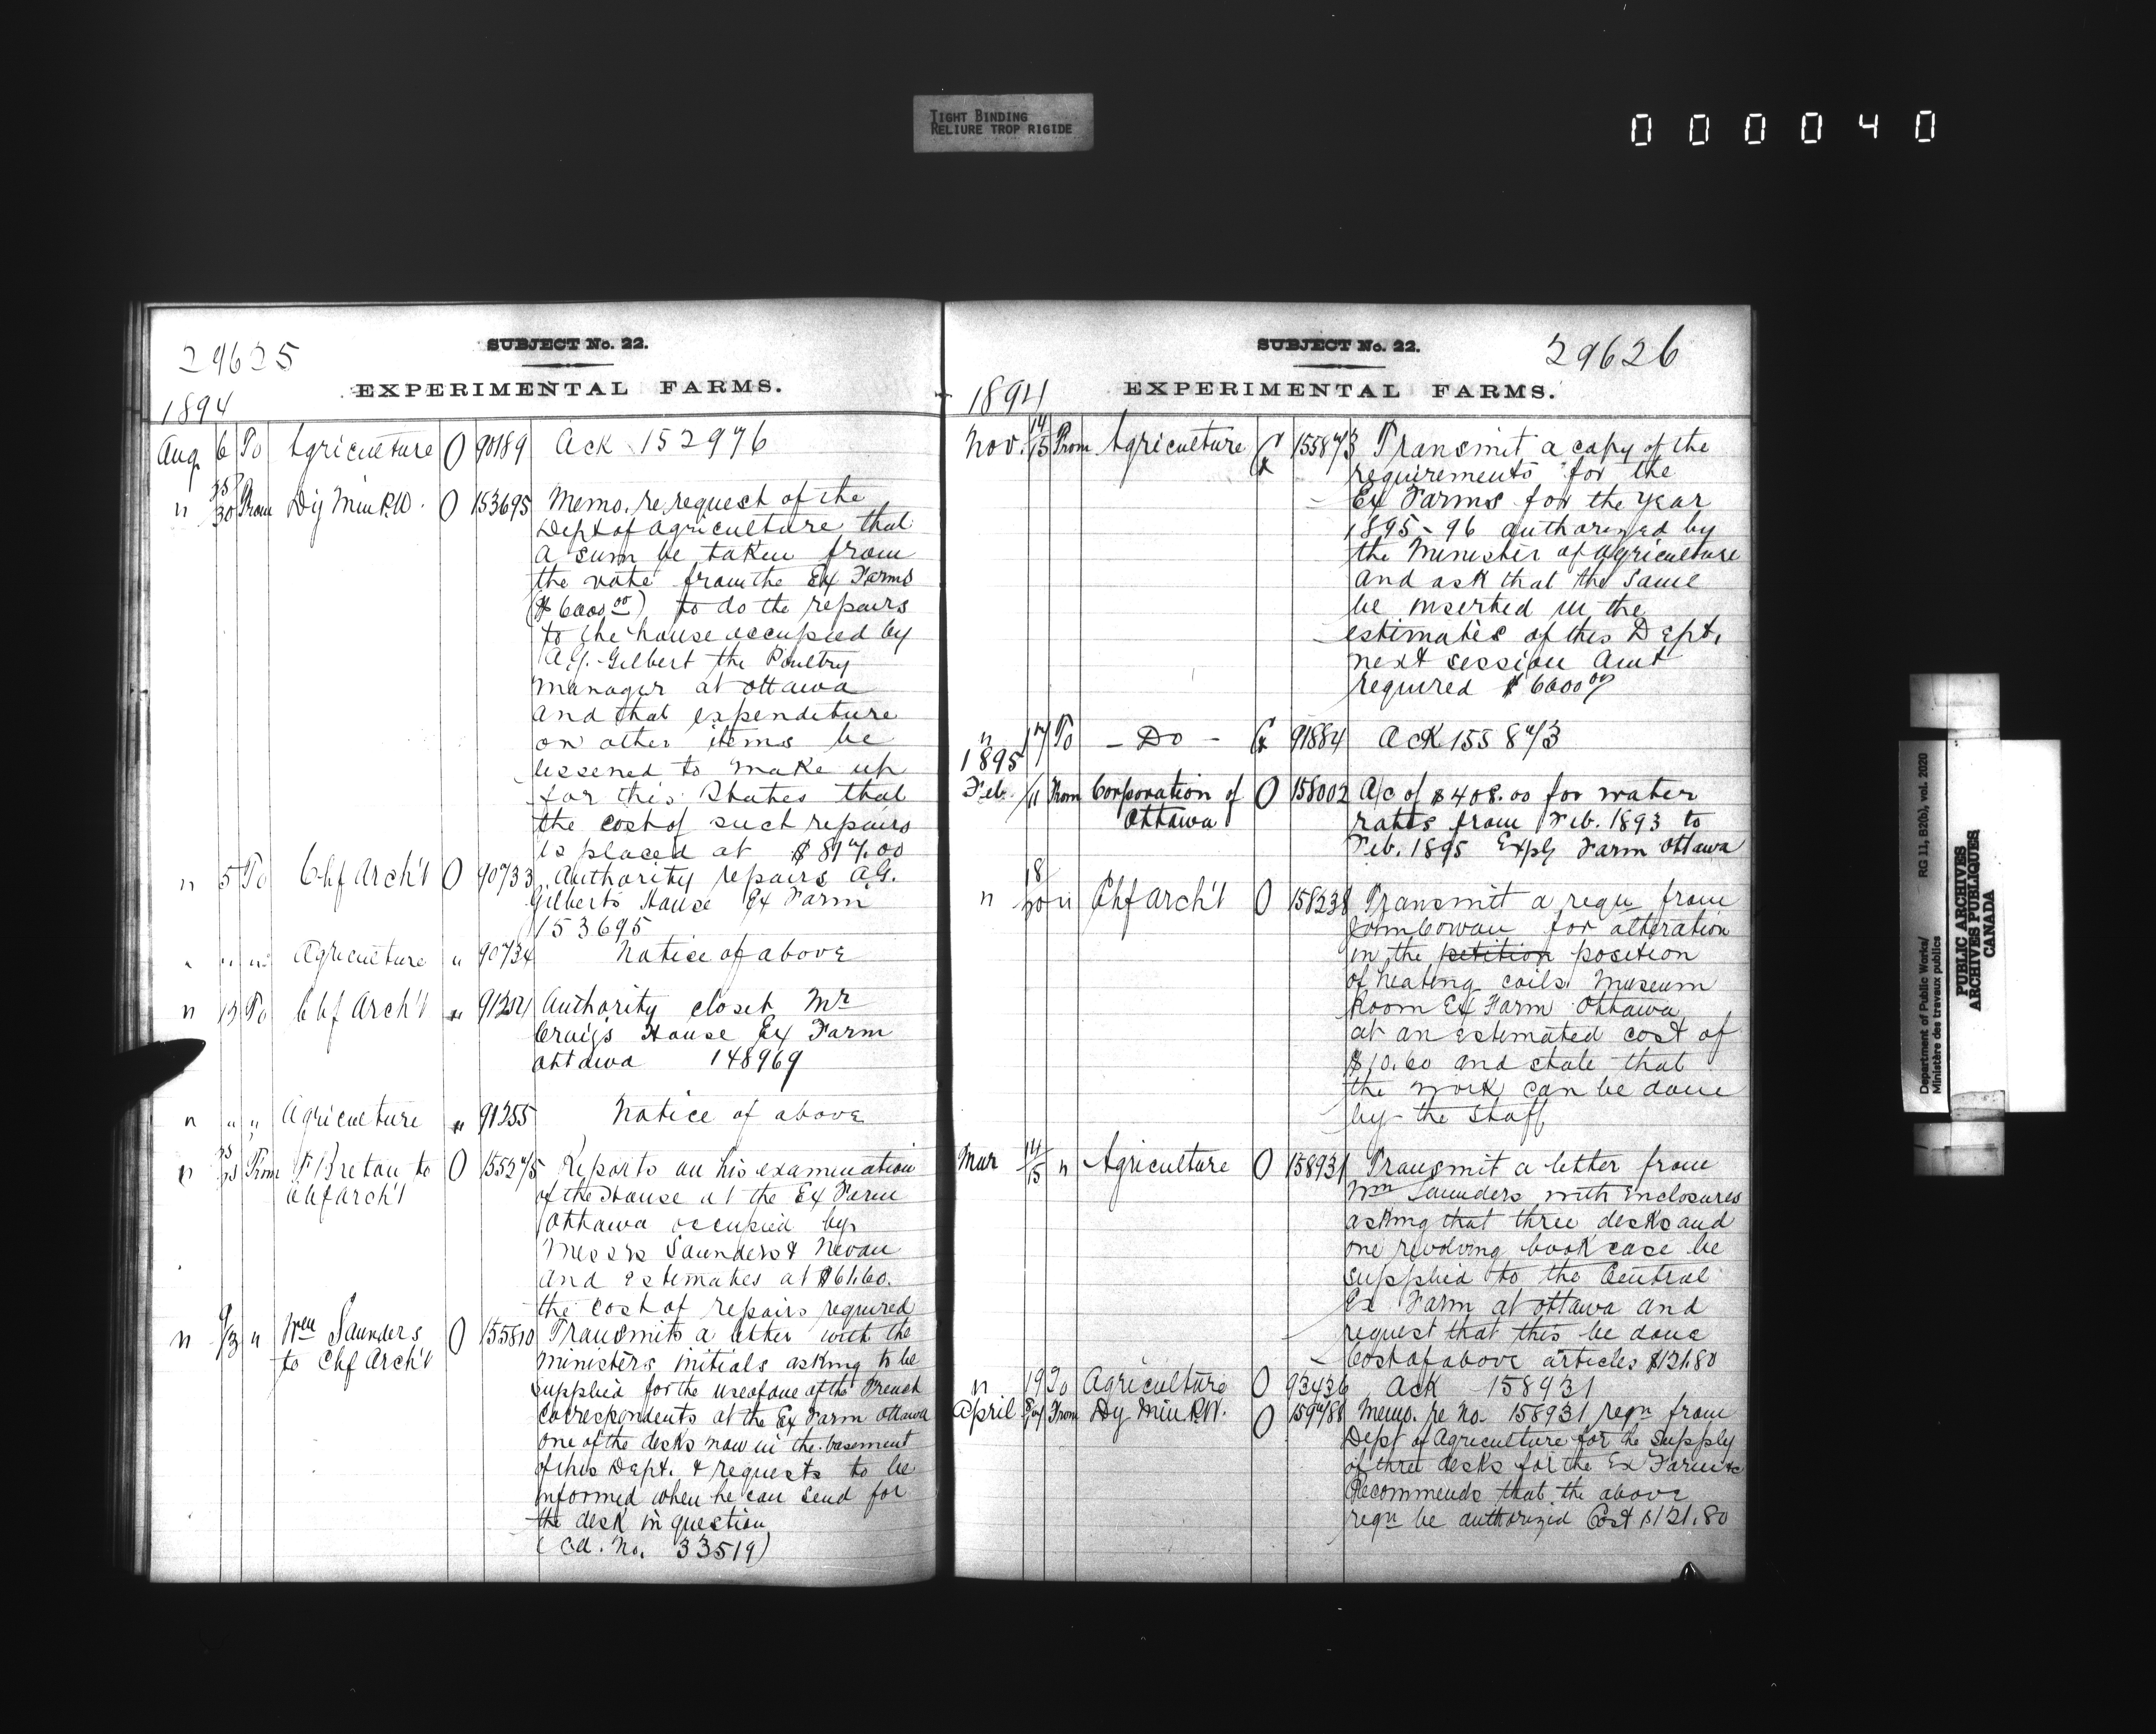 TIGHT BINDING
RELIURE TROP RIGIDE
000040
29625
SUBJECT No. 22.
EXPERIMENTAL FARMS.
1894
Aug 6 To Agriculture O 90189 Ack 152976
" 30 From Dy Min P.W. O 153695 Memo. re request of the
Dept of Agriculture that
a sum be taken from
the vote from the Ex Farms
($6000 00) to do the repairs
to the house occupied by
A.G. Gilbert the Poultry
Manager at Ottawa
and that expenditure
on other items be
lessened to make up
for this. States that
the cost of such repairs
is placed at $817.00
" 5 To Chf Arch't O 90733 Authority repairs A.G.
Gilberts House Ex Farm
153695
" " " Agriculture " 90734 Notice of above
" 13 To Chf Arch't " 91254 Authority closet Mr
Craig's House Ex Farm
Ottawa 148969
" " " Agriculture " 91255 Notice of above
" From Breton to O 155275 Reports on his examination
Chf Arch't of the House at the Ex Farm
Ottawa occupied by
Messrs Saunders &
and estimates at $61.60.
the cost of repairs required
" 9/13 " Wm Saunders O 155810 Transmits a letter with the
to Chf Arch't Ministers initials asking to be
supplied for the use of one of the French
correspondents at the Ex Farm Ottawa
one of the desks now in the basement
of this Dept. & requests to be
informed when he can send for
the desk in question
(Cd. No. 33519)
SUBJECT No. 22.
29626
EXPERIMENTAL FARMS.
1894
Nov. 14/15 From Agriculture 155873 Transmit a copy of the
requirements for the
Ex Farms for the year
1895-96 authorized by
the Minister of Agriculture
and ask that the same
be inserted in the
estimates of this Dept.
next session Amt
required $6000 00
" 17 To - Do - 91884 Ack 155873
1895
Feb. /11 From Corporation of O 158002 A/c of $408.00 for water
Ottawa rates from Feb. 1893 to
Feb. 1895 Expl Farm Ottawa
" 18/20 " Chf Arch't O 158238 Transmitt a requ from
John Cowan for alteration
in the petition position
of heating coils Museum
Room Ex Farm Ottawa
at an estimated cost of
$10.60 and state that
the work can be done
by the staff
Mar 14/15 " Agriculture O 158931 Transmit a letter from
Wm Saunders with Enclosures
asking that three desks and
one revolving book case be
supplied to the Central
Ex. Farm at Ottawa and
request that this be done
Cost of above articles $121.80
" 19 To Agriculture O 93436 Ack 158931
April From Dy Min P.W. O 159788 Memo. re No. 158931 reqn from
Dept of Agriculture for the supply
of three desks for the Ex Farm &c
Recommends that the above
reqn be authorized Cost $121.80
Department of Public Works/
Ministère des travaux publics
RG 11, B2(b), vol. 2020
PUBLIC ARCHIVES
ARCHIVES PUBLIQUES
CANADA